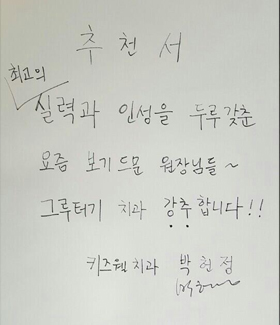 추천서
최고의
실력과 인성을 두루갖춘
요즘 보기드문 원장님들~
그루터기 치과 강추합니다!!
키즈웰치과 박헌정